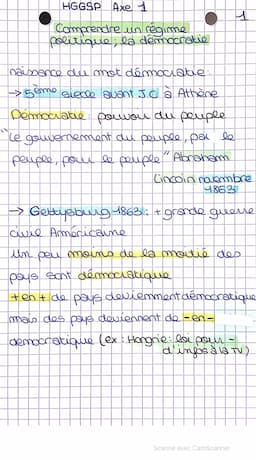 HGGSP Axe 1
1
Comprendre un régime
politique; la démocratie
naissance du mot démocratie.
→ 5ème siècle avant JC à Athène
Démocratie: pouvoir du peuple
"Le gouvernement du peuple, par le
peuple, pour le peuple" Abraham
Lincoln novembre
1863
→ Gettysburg 1863: + grande guerre
civile Américaine
Un peu moins de la moitié des
pays sont démocratique
+ en + de pays deviennent démocratique
mais des pays deviennent de - en -
démocratique (ex: Hongrie: loi pour -
d'infos à la TV)
Scanné avec CamScanner